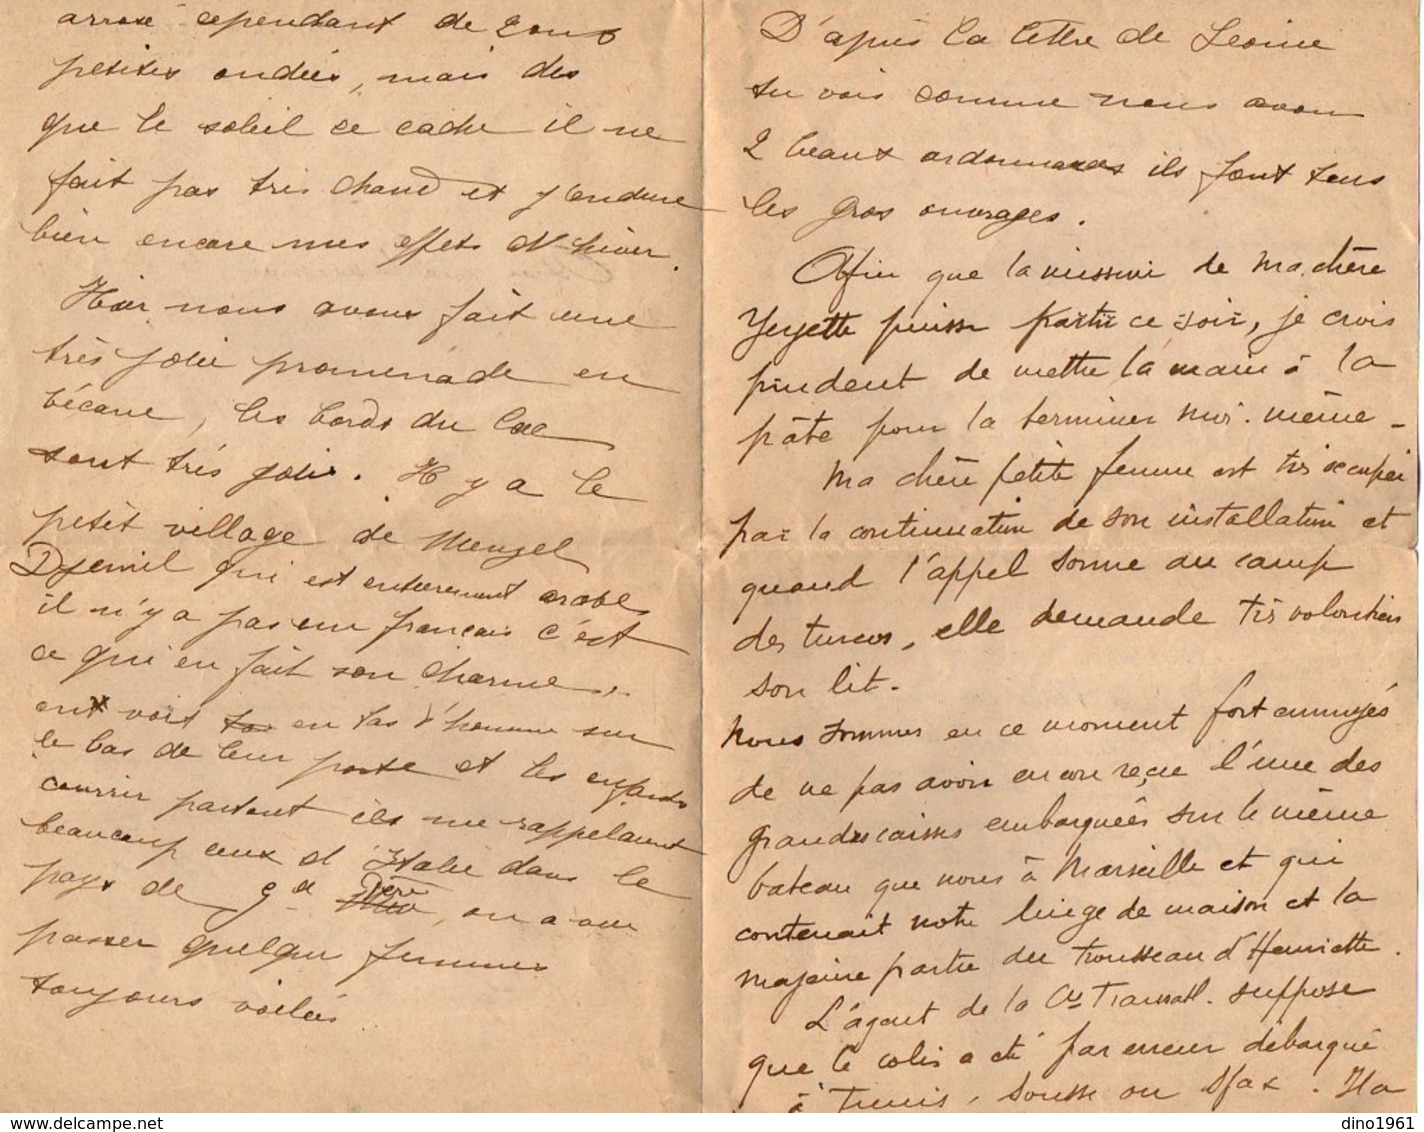 arrosé cependant de 2 ou 3
petites ondées, mais des
que le soleil ce cache il ne
fait pas tres chaud et j'endure
bien encore mes effets d'hiver.
Hier nous avons fait une
très jolie promenade en
bécane, les bords du lac
sont très jolis. Il y a le
petit village de Menzel
Djemil qui est entierement arabe
il n'y a pas un français c'est
ce qui en fait son charme,
ont voit en tas d'homme sur
le bas de leur porte et les enfants
courrir partout ils me rappelaient
beaucoup ceux d'Italie dans le
pays de gd Père, on a vu
passer quelques femmes
toujours voilées.
D'après la lettre de Leonie
tu vois comme nous avons
2 beaux ordonnances ils font tous
les gros ouvrages.
Afin que la missive de ma chère
Yeyette puisse partir ce soir, je crois
prudent de mettre la main à la
pâte pour la terminer moi-même -
Ma chère petite femme est très occupée
par la continuation de son installation et
quand l'appel sonne au camp
des turcos, elle demande très volontiers
son lit.
Nous sommes en ce moment fort ennuyés
de ne pas avoir encore reçue l'une des
grandes caisses embarquées sur le même
bateau que nous à Marseille et qui
contenait notre linge de maison et la
majeure partie du trousseau d'Henriette.
L'agent de la Cie Transatl. suppose
que le colis a été par erreur débarqué
à Tunis, Sousse ou Sfax. Il a
dino1961